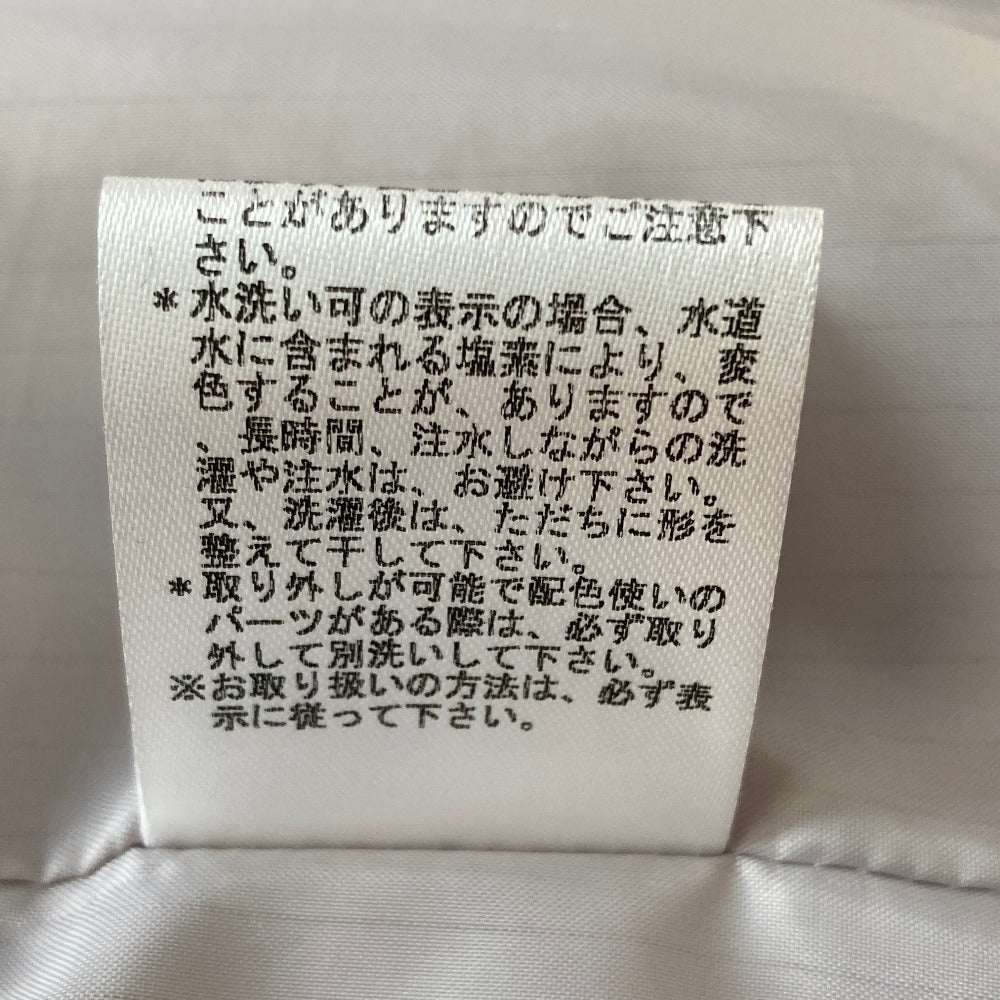 ことがありますのでご注意下
さい。
*水洗い可の表示の場合、水道
水に含まれる塩素により、変
色することが、ありますので
、長時間、注水しながらの洗
濯や注水は、お避け下さい。
又、洗濯後は、ただちに形を
整えて干して下さい。
*取り外しが可能で配色使いの
パーツがある際は、必ず取り
外して別洗いして下さい。
※お取り扱いの方法は、必ず表
示に従って下さい。